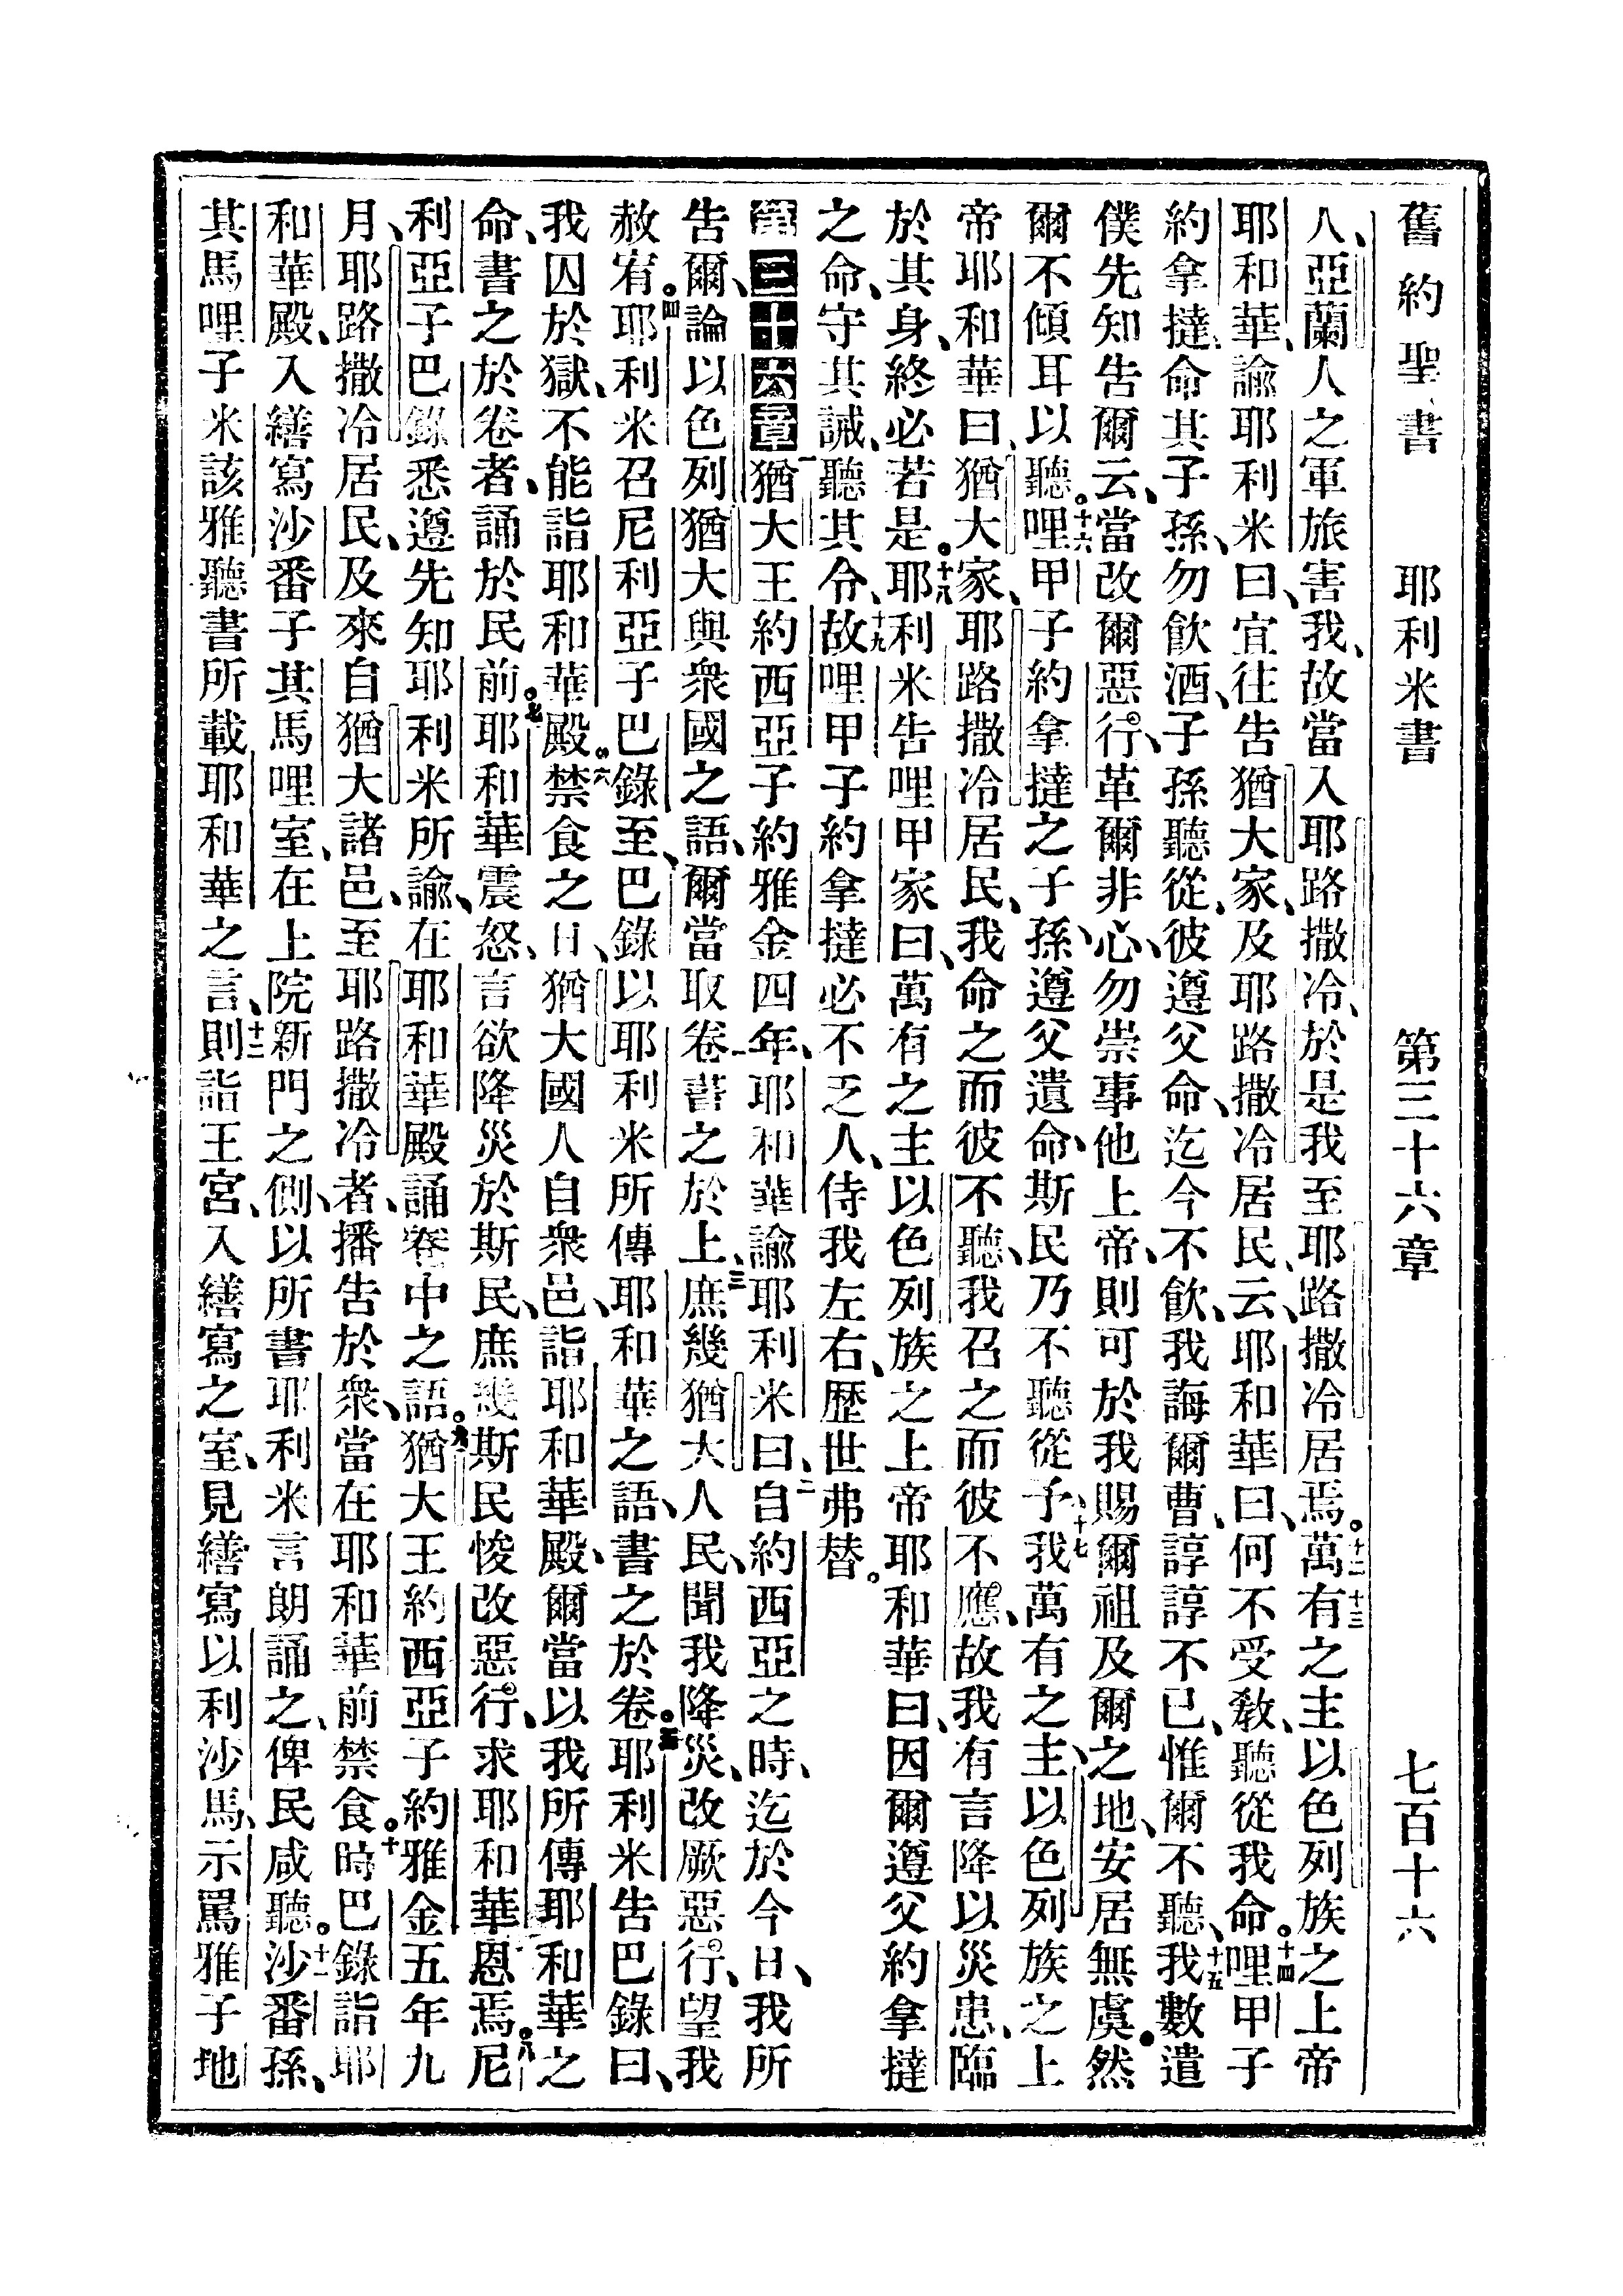 舊約聖書 耶利米書 第三十六章 七百十六
人、亞蘭人之軍旅害我、故當入耶路撒冷、於是我至耶路撒冷居焉。十二十三萬有之主以色列族之上帝
耶和華、諭耶利米曰、宜往告猶大家、及耶路撒冷居民、云、耶和華曰、何不受教、聽從我命。十四哩甲子
約拿撻、命其子孫、勿飲酒、子孫聽從、彼遵父命、迄今不飲、我誨爾曹、諄諄不已、惟爾不聽、十五我數遣
僕先知告爾云、當改爾惡行、革爾非心、勿崇事他上帝、則可於我賜爾祖及爾之地、安居無虞。然
爾不傾耳以聽。十六哩甲子約拿撻之子孫、遵父遺命、斯民乃不聽從予、十七我萬有之主、以色列族之上
帝耶和華曰、猶大家、耶路撒冷居民、我命之而彼不聽、我召之而彼不應、故我有言降以災患、臨
於其身、終必若是。十八耶利米告哩甲家曰、萬有之主以色列族之上帝耶和華曰、因爾遵父約拿撻
之命、守其誡、聽其令、十九故哩甲子約拿撻必不乏人、侍我左右、歷世弗替。
第三十六章一猶大王約西亞子約雅金四年、耶和華諭耶利米曰、二自約西亞之時、迄於今日、我所
告爾、論以色列猶大與衆國之語、爾當取卷書之於上、三庶幾猶大人民、聞我降災、改厥惡行、望我
赦宥。四耶利米召尼利亞子巴錄至、巴錄以耶利米所傳耶和華之語、書之於卷。五耶利米告巴錄曰、
我囚於獄、不能詣耶和華殿。六禁食之日、猶大國人自衆邑、詣耶和華殿、爾當以我所傳耶和華之
命、書之於卷者、誦於民前。七耶和華震怒、言欲降災於斯民、庶幾斯民悛改惡行、求耶和華恩焉。八尼
利亞子巴錄悉遵先知耶利米所諭、在耶和華殿誦卷中之語。九猶大王約西亞子約雅金五年九
月、耶路撒冷居民、及來自猶大諸邑、至耶路撒冷者、播告於衆、當在耶和華前禁食。十時巴錄詣耶
和華殿、入繕寫沙番子其馬哩室、在上院新門之側、以所書耶利米言朗誦之、俾民咸聽。十一沙番孫、
其馬哩子米該雅聽書所載耶和華之言、十二則詣王宮、入繕寫之室、見繕寫以利沙馬、示罵雅子地